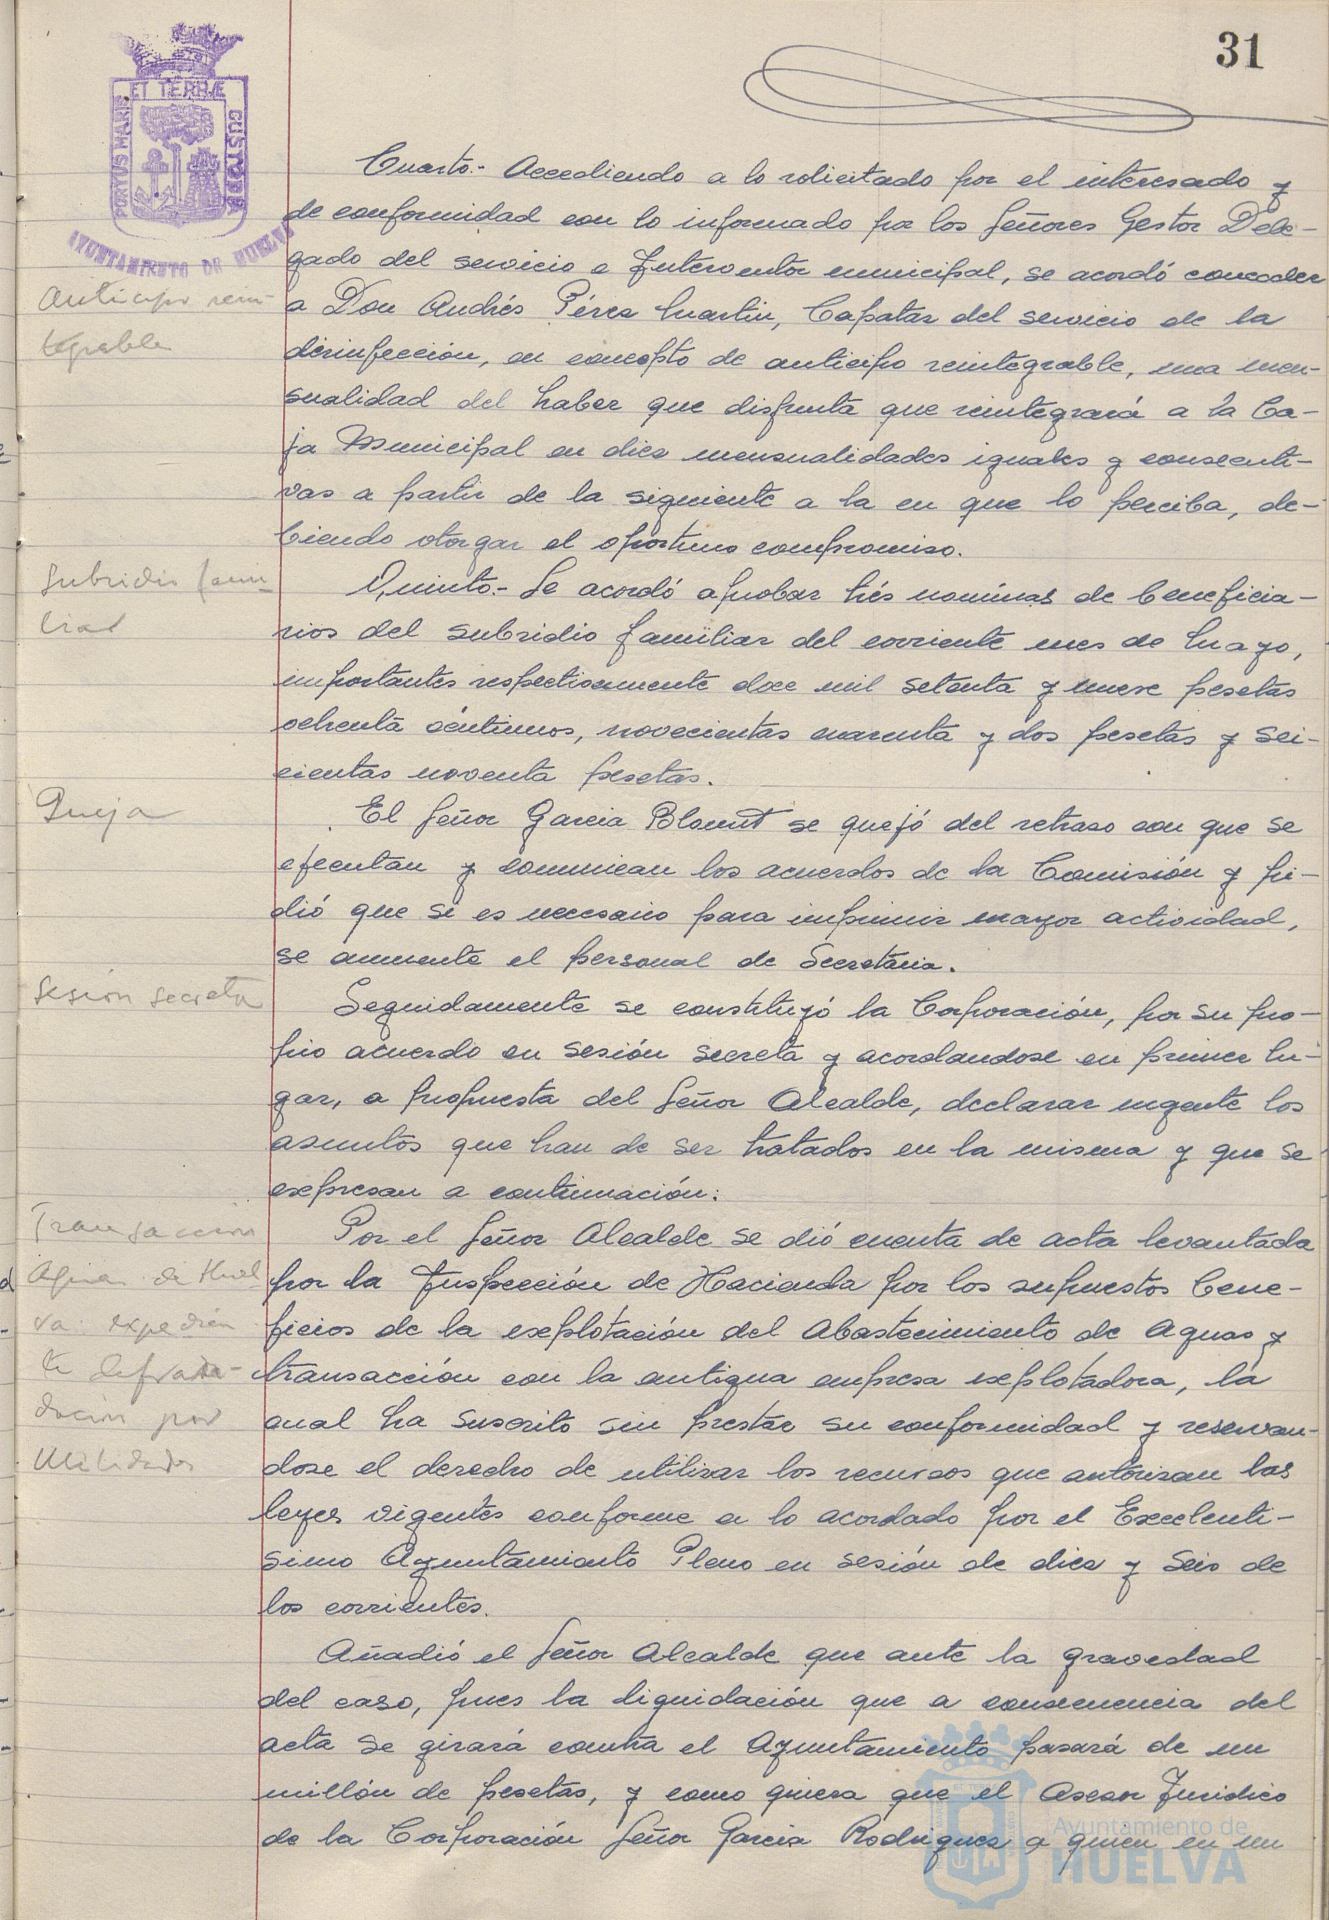 31
PORTUS MARIS ET TERRÆ CUSTODIA
AYUNTAMIENTO DE HUELVA
Cuarto.- Accediendo a lo solicitado por el interesado y
de conformidad con lo informado por los Señores Gestor Dele-
gado del servicio e Interventor municipal, se acordó conceder
Anticipo rein-
tegrable
a Don Andrés Pérez Martin, Capataz del servicio de la
desinfección, en concepto de anticipo reintegrable, una men-
sualidad del haber que disfruta que reintegrará a la Ca-
ja Municipal en diez mensualidades iguales y consecuti-
vas a partir de la siguiente a la en que lo perciba, de-
biendo otorgar el oportuno compromiso.
Subsidio fami-
liar
Quinto.- Se acordó aprobar trés nominas de beneficia-
rios del subsidio familiar del corriente mes de Mayo,
importantes respectivamente doce mil setenta y nueve pesetas
ochenta céntimos, novecientas cuarenta y dos pesetas y sei-
cientas noventa pesetas.
Queja
El Señor Garcia Blount se quejó del retraso con que se
ejecutan y comunican los acuerdos de la Comisión y pi-
dió que si es necesario para imprimir mayor actividad,
se aumente el personal de Secretaria.
Sesión secreta
Seguidamente se constituyó la Corporación, por su pro-
pio acuerdo en sesión secreta y acordandose en primer lu-
gar, a propuesta del Señor Alcalde, declarar urgente los
asuntos que han de ser tratados en la misma y que se
expresan a continuación:
Transaccion
Aguas de Huel
va expedien
te defrau-
dacion por
Utilidades
Por el Señor Alcalde se dió cuenta de acta levantada
por la Inspección de Hacienda por los supuestos bene-
ficios de la explotación del Abastecimiento de Aguas y
transacción con la antigua empresa explotadora, la
cual ha suscrito sin prestar su conformidad y reservan-
dose el derecho de utilizar los recursos que autorizan las
leyes vigentes conforme a lo acordado por el Excelenti-
simo Ayuntamiento Pleno en sesión de diez y seis de
los corrientes.
Añadió el Señor Alcalde que ante la gravedad
del caso, pues la liquidación que a consecuencia del
acta se girará contra el Ayuntamiento pasará de un
millón de pesetas, y como quiera que el Asesor Juridico
de la Corporación Señor Garcia Rodriguez a quien en un
Ayuntamiento de
HUELVA